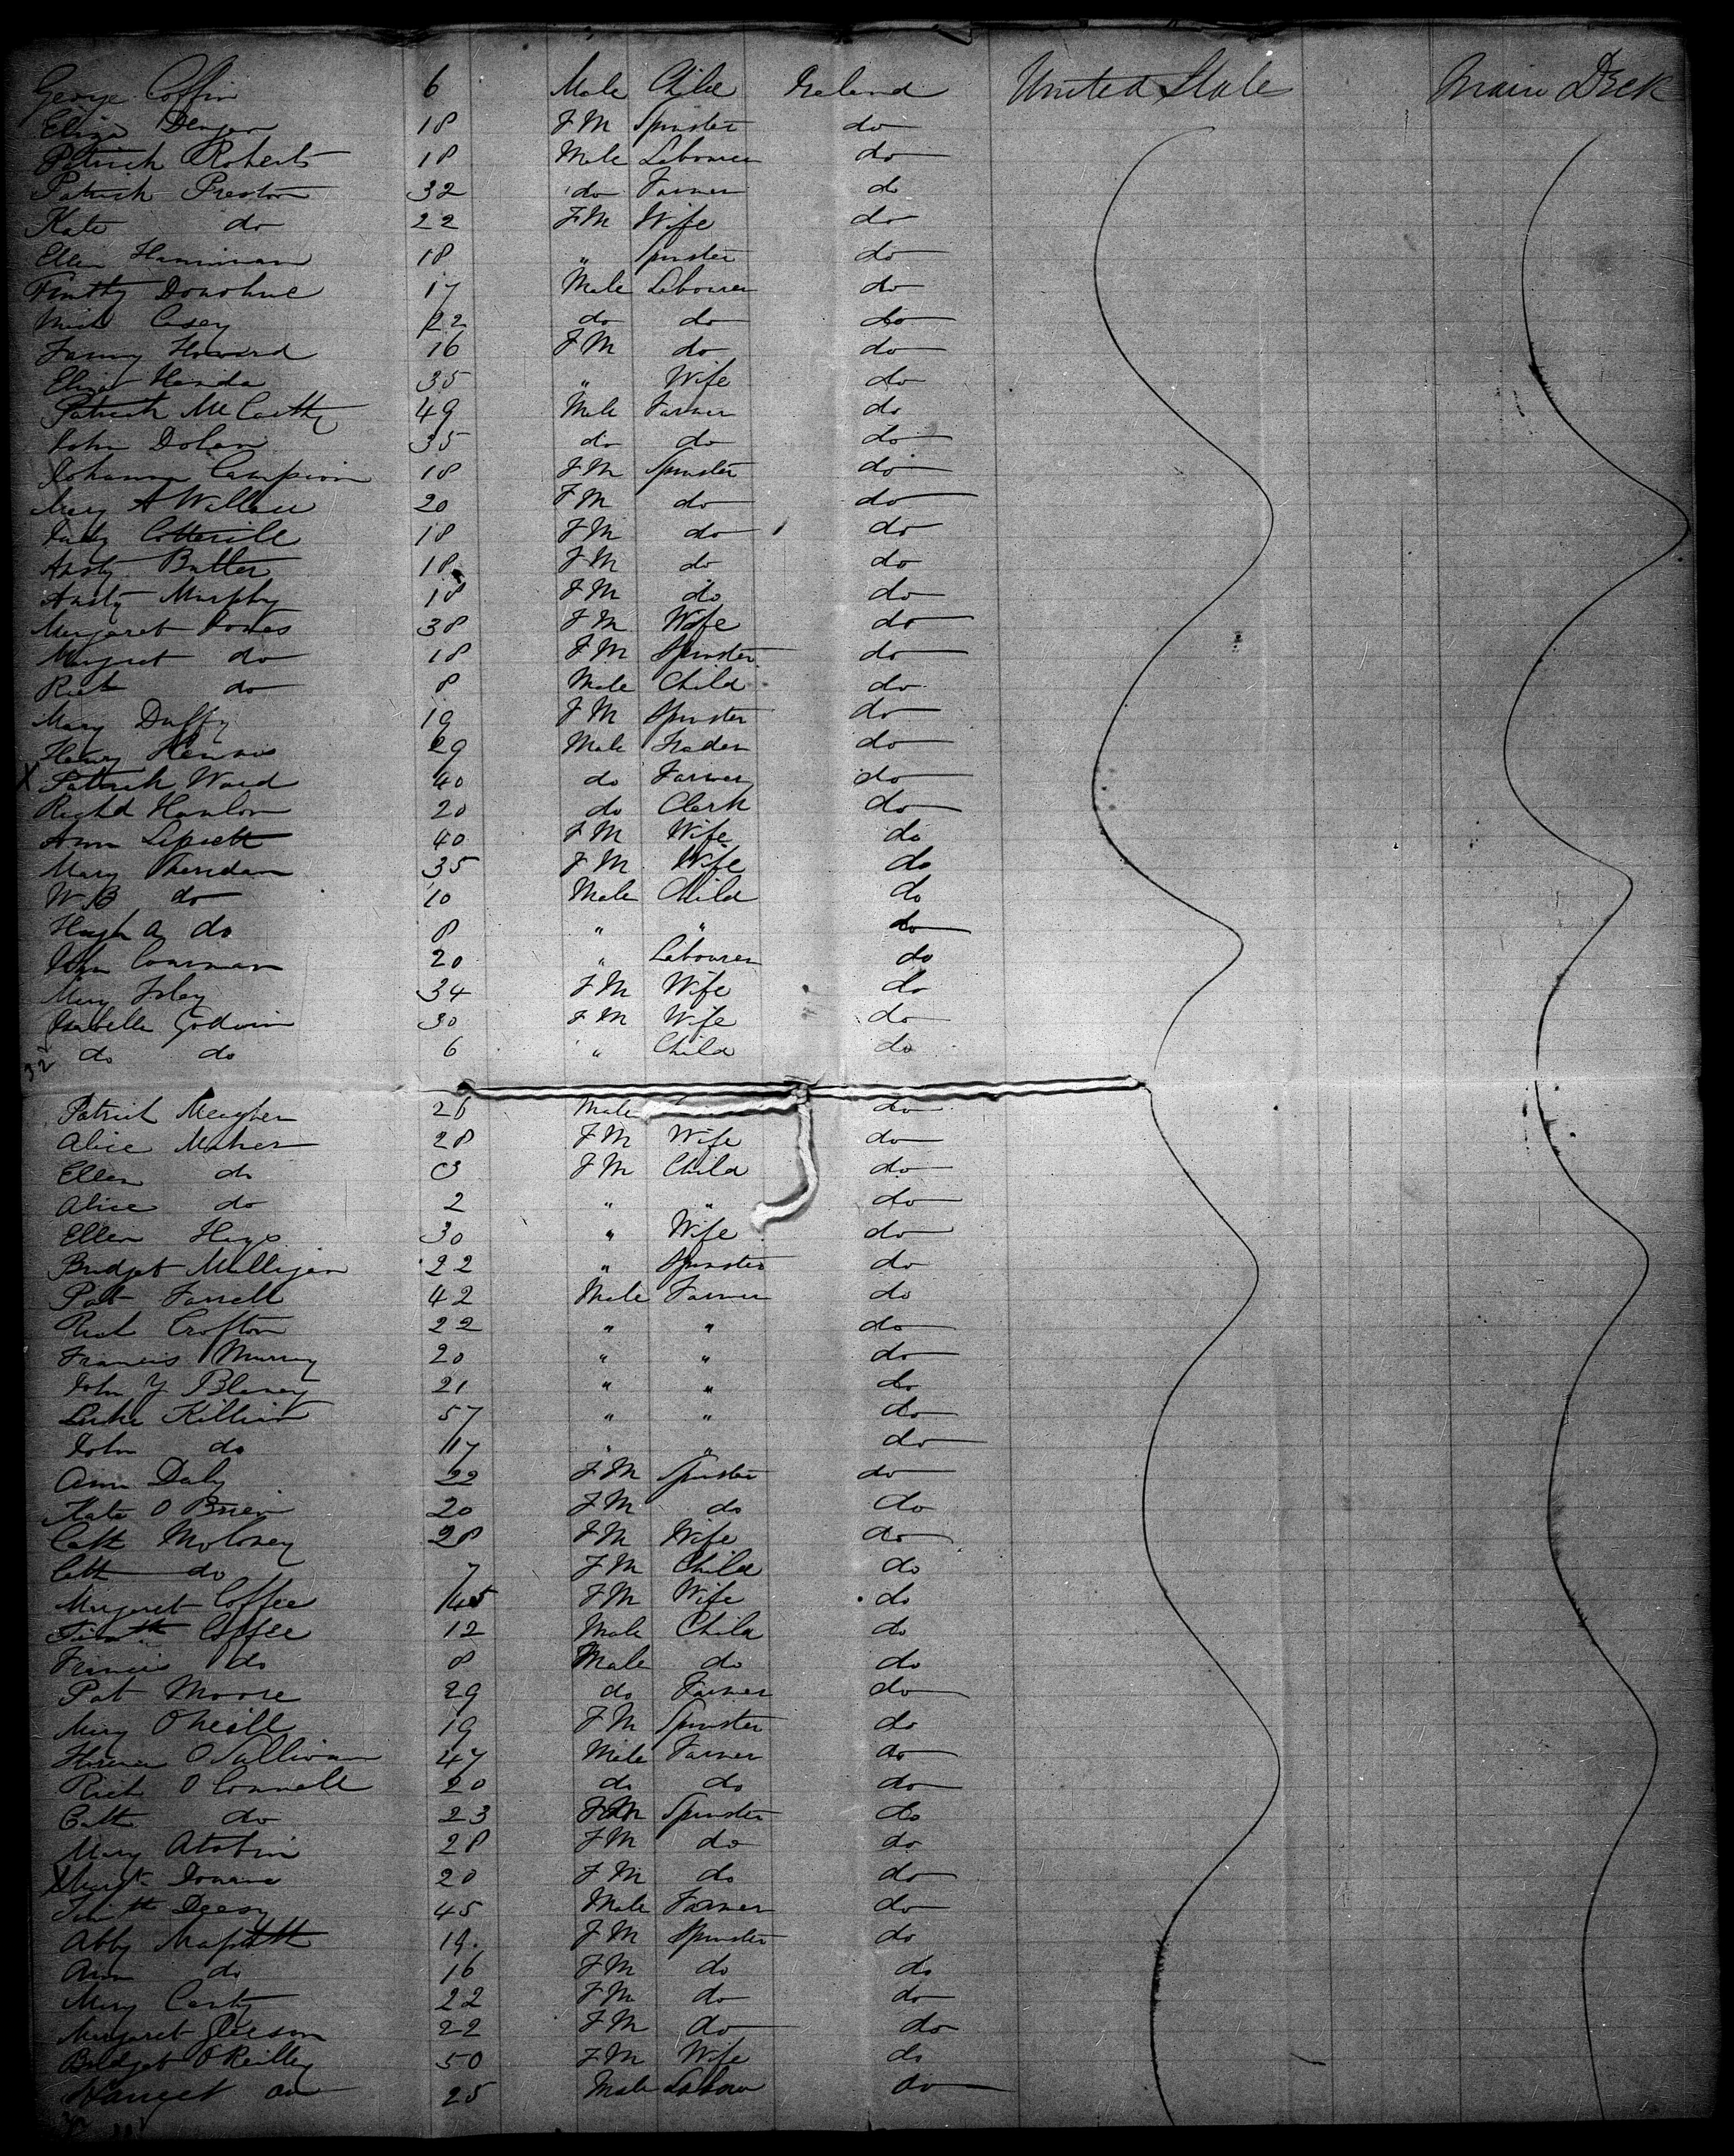 George Coffin 6 Male Child Ireland United State Main Deck
Eliza 18 FM Spinster do
Patrick Roberts 18 Male Labourer do
Patrick Preston 32 do Farmer do
Kate do 22 FM Wife do
Ellen 18 " Spinster do
Timothy Donohue 17 Male Labourer do
Mich Casey 22 do do do
Fanny Howard 16 FM do do
Eliza 35 " Wife do
Patrick McCarthy 49 Male Farmer do
John Dolan 35 do do do
Johanna Campion 18 FM Spinster do
Mary A Wallace 20 FM do do
Judy Cotterill 18 FM do do
Ansty Butler 18 FM do do
Ansty Murphy 18 FM do do
Margaret Jones 38 FM Wife do
Margret do 18 FM Spinster do
Rich do 8 Male Child do
Mary Duffy 19 FM Spinster do
Henry 29 Male Trader do
X Patrick Ward 40 do Farmer do
Richd Hanlon 20 do Clerk do
Ann Lipsett 40 FM Wife do
Mary Sheridan 35 FM Wife do
W.B do 10 Male Child do
Hugh A do 8 " " do
John 20 " Labourer do
Mary Foley 34 FM Wife do
Isabella Godwin 30 FM Wife do
32 do do 6 " Child do
Patrick Meagher Male do
Alice Maher 28 FM Wife do
Ellen do 3 FM Child do
Alice do 2 " " do
Ellen Hays 30 " Wife do
Bridget Milligan 22 " Spinster do
Pat Farrell 42 Male Farmer do
Rich Crofton 22 " " do
Francis Murray 20 " " do
John Y Blaney 21 " " do
Luke Killian 57 " " do
John do 17 " " do
Ann Daly 22 FM Spinster do
Kate O Brien 20 FM do do
Cath Moloney 28 FM Wife do
Cath do 7 FM Child do
Margaret Coffee 45 FM Wife do
Timth Coffee 12 Male Child do
Francis do 8 Male do do
Pat Moore 29 do Farmer do
Mary ONeill 19 FM Spinster do
O Sullivan 47 Male Farmer do
Rich O Connell 20 do do do
Cath do 23 FM Spinster do
Mary 28 FM do do
X Margt 20 FM do do
Timth Deesy 45 Male Farmer do
Abby 19 FM Spinster do
Ann do 16 FM do do
Mary Carty 22 FM do do
Margaret Gleeson 22 FM do do
Bridget O Reilly 50 FM Wife do
do 25 Male Labour do